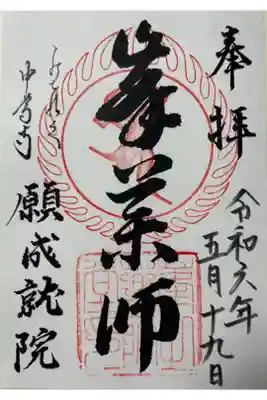 奉拝
令和六年
五月十九日
峯薬師
中尊寺
願成就院